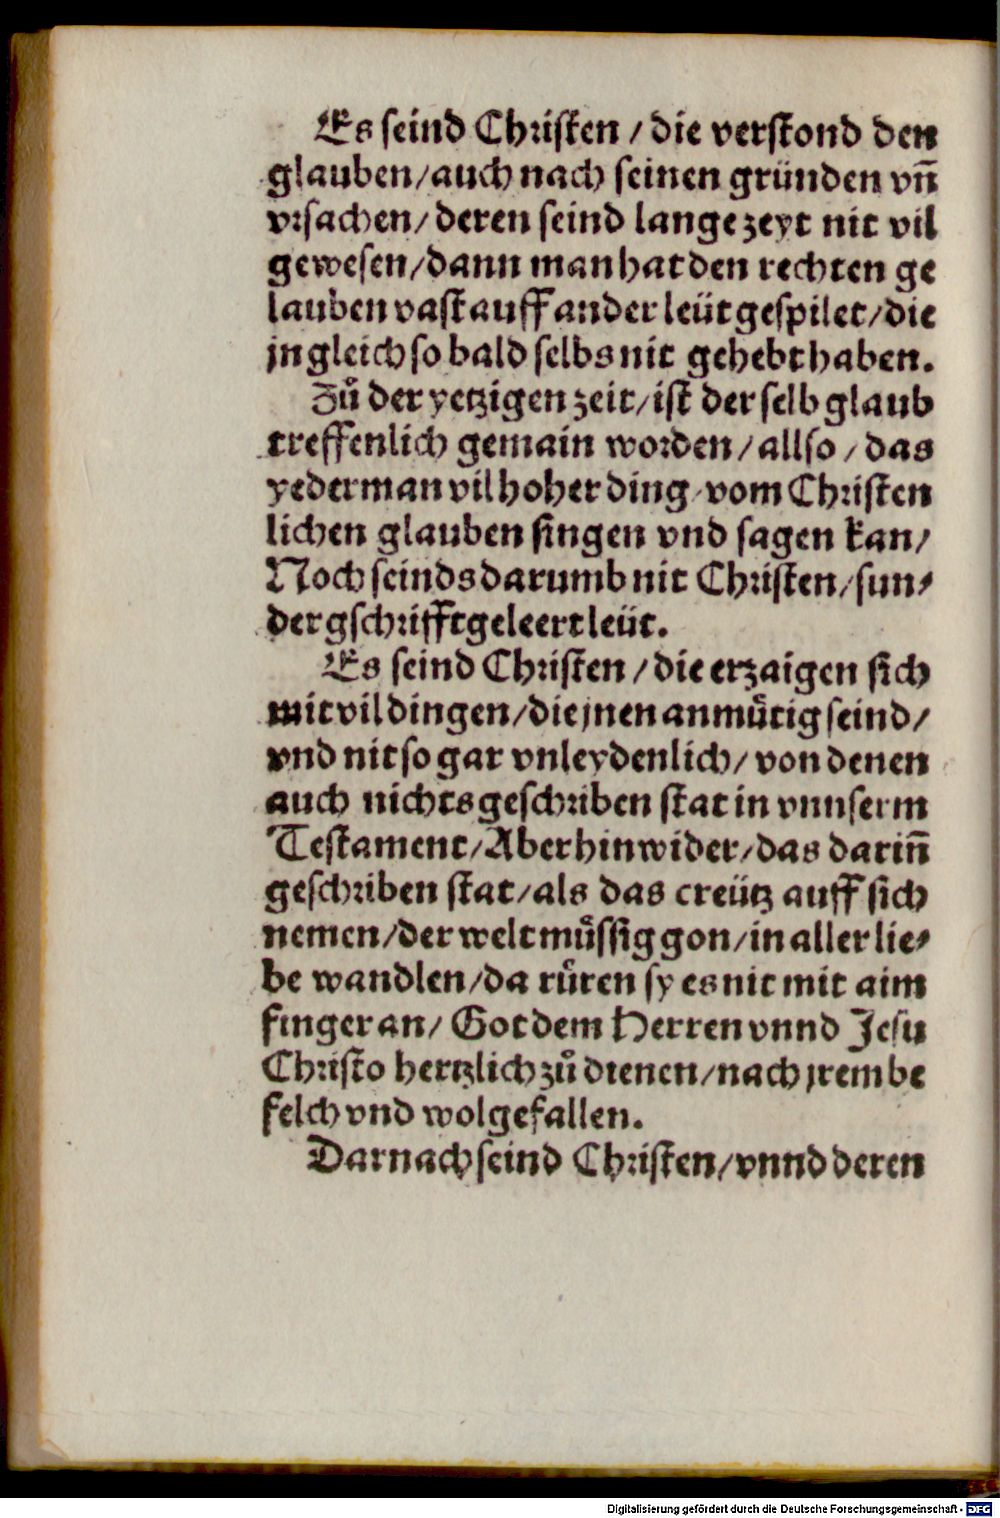 Es seind Christen / die verstond den
glauben / auch nach seinen gründen vn̄
vrsachen / deren seind lange zeyt nit vil
gewesen / dann man hat den rechten ge
lauben vast auff ander leüt gespilet / die
jn gleich so bald selbs nit gehebt haben.
Zů der yetzigen zeit / ist der selb glaub
treffenlich gemain worden / allso / das
yederman vil hoher ding / vom Christen
lichen glauben singen vnd sagen kan /
Noch seinds darumb nit Christen / sun⸗
der gschrifft geleert leüt.
Es seind Christen / die erzaigen sich
mit vil dingen / die jnen anmůtig seind /
vnd nit so gar vnleydenlich / von denen
auch nichts geschriben stat in vnnserm
Testament / Aber hinwider / das darin̄
geschriben stat / als das creütz auff sich
nemen / der welt můssig gon / in aller lie⸗
be wandlen / da růren sy es nit mit aim
finger an / Got dem Herren vnnd Jesu
Christo hertzlich zů dienen / nach jrem be
felch vnd wolgefallen.
Darnach seind Christen / vnnd deren
Digitalisierung gefördert durch die Deutsche Forschungsgemeinschaft - DFG